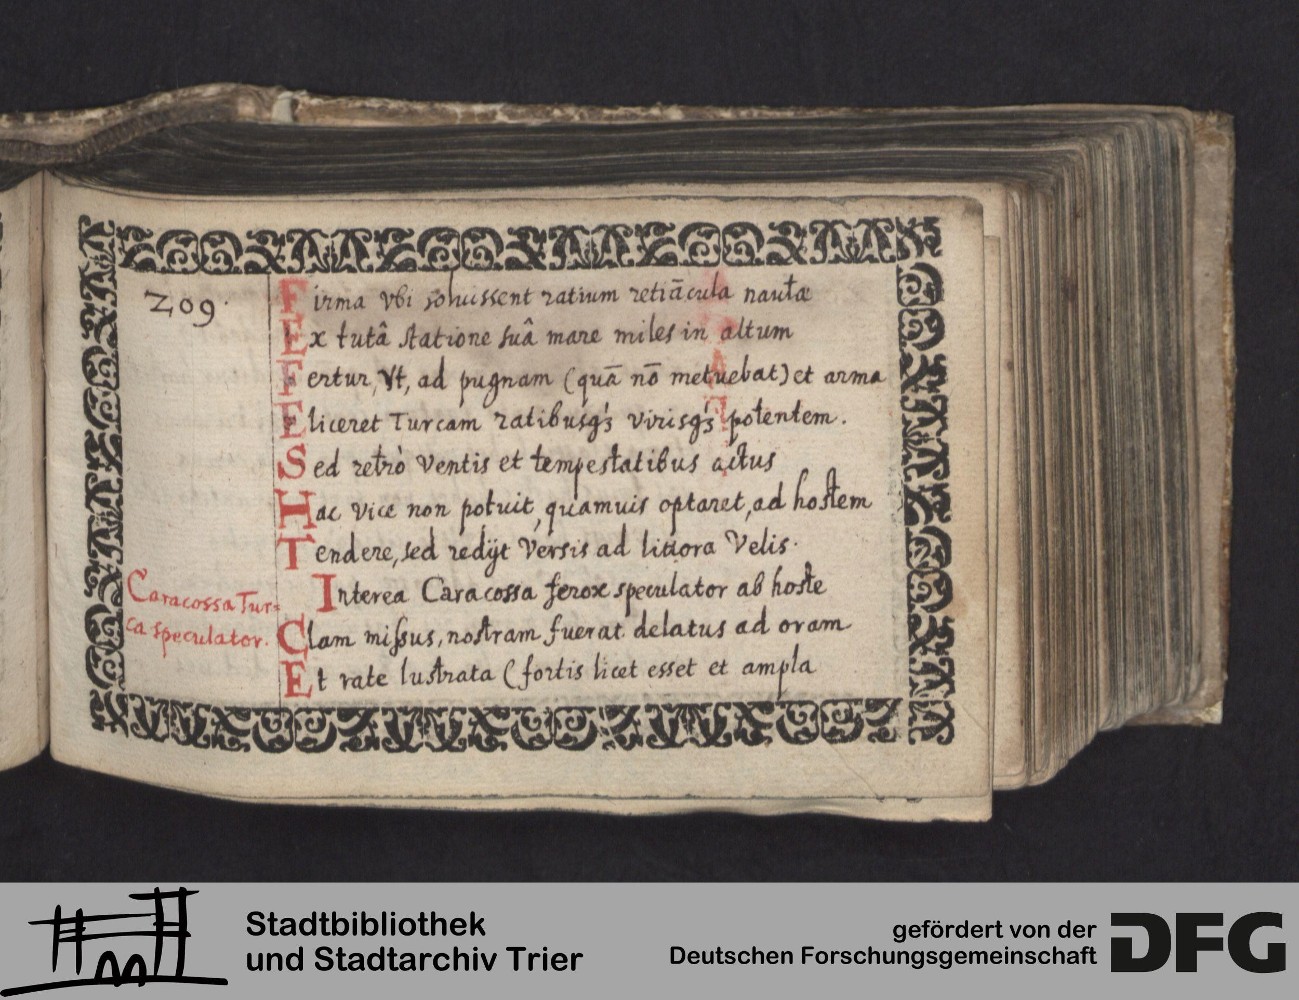 209.
Firma vbi soluissent ratium retiācula nautæ
Ex tutâ statione suâ mare miles in altum
Fertur, vt, ad pugnam (quā nō metuebat) et arma
Eliceret Turcam ratibusq́3 virisq́3 potentem.
Sed retrò ventis et tempestatibus actus
Hac vice non potuit, quamuis optaret, ad hostem
Tendere, sed redijt versis ad littora velis.
Interea Caracossa ferox speculator ab hoste
Caracossa Tur=
ca speculator.
Clam missus, nostram fuerat delatus ad oram
Et rate lustrata (fortis licet esset et ampla
Stadtbibliothek
und Stadtarchiv Trier
gefördert von der
Deutschen Forschungsgemeinschaft
DFG